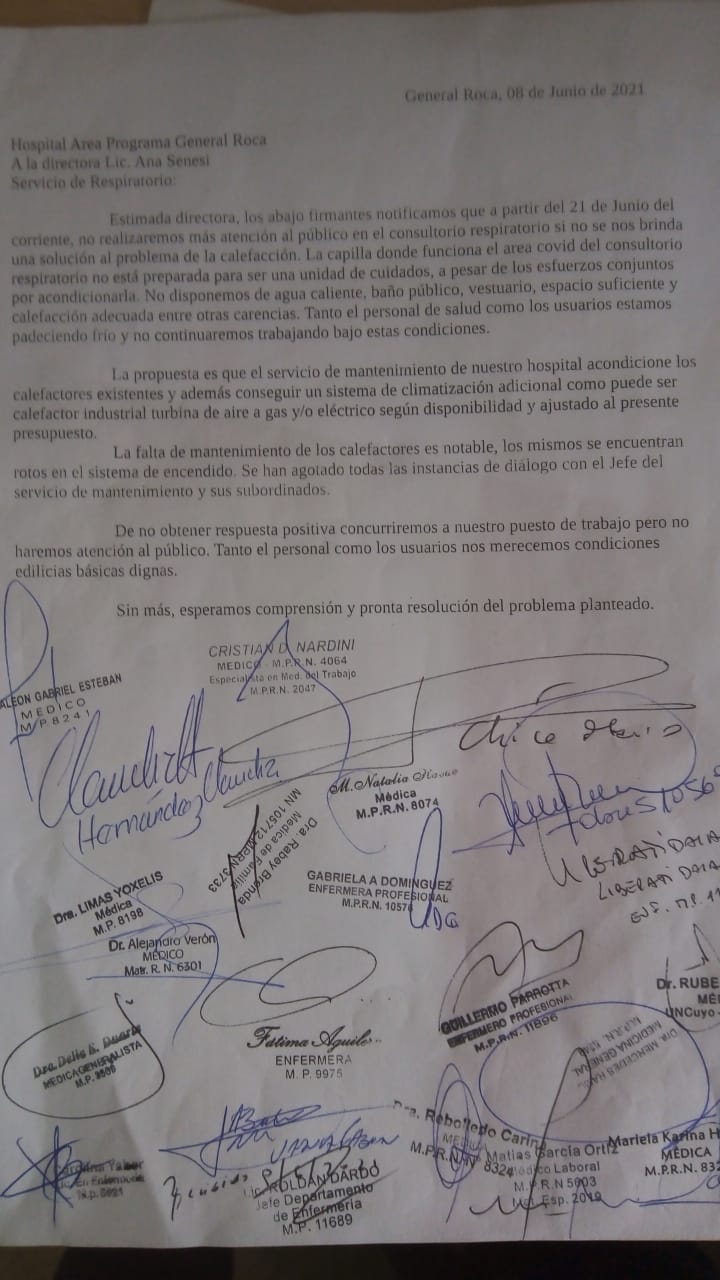 General Roca, 08 de Junio de 2021
Hospital Area Programa General Roca
A la directora Lic. Ana Senesi
Servicio de Respiratorio:
Estimada directora, los abajo firmantes notificamos que a partir del 21 de Junio del
corriente, no realizaremos más atención al público en el consultorio respiratorio si no se nos brinda
una solución al problema de la calefacción. La capilla donde funciona el area covid del consultorio
respiratorio no está preparada para ser una unidad de cuidados, a pesar de los esfuerzos conjuntos
por acondicionarla. No disponemos de agua caliente, baño público, vestuario, espacio suficiente y
calefacción adecuada entre otras carencias. Tanto el personal de salud como los usuarios estamos
padeciendo frio y no continuaremos trabajando bajo estas condiciones.
La propuesta es que el servicio de mantenimiento de nuestro hospital acondicione los
calefactores existentes y además conseguir un sistema de climatización adicional como puede ser
calefactor industrial turbina de aire a gas y/o eléctrico según disponibilidad y ajustado al presente
presupuesto.
La falta de mantenimiento de los calefactores es notable, los mismos se encuentran
rotos en el sistema de encendido. Se han agotado todas las instancias de diálogo con el Jefe del
servicio de mantenimiento y sus subordinados.
De no obtener respuesta positiva concurriremos a nuestro puesto de trabajo pero no
haremos atención al público. Tanto el personal como los usuarios nos merecemos condiciones
edilicias básicas dignas.
Sin más, esperamos comprensión y pronta resolución del problema planteado.
CRISTIAN D. NARDINI
MEDICO - M.P.R.N. 4064
Especialista en Med. del Trabajo
M.P.R.N. 2047
ALEON GABRIEL ESTEBAN
MEDICO
M/P 8241
Hernández Claudia
M. Natalia
Médica
M.P.R.N. 8074
Dra. Rabey Brenda
Medica de Familia
MN 105712 MPRN 3733
Dra. LIMAS YOXELIS
Médica
M.P. 8198
GABRIELA A DOMINGUEZ
ENFERMERA PROFESIONAL
M.P.R.N. 10576
LIBERATI DAIA
ENF. M.P. 11
Dr. Alejandro Verón
MEDICO
Matr. R. N. 6301
GUILLERMO PARROTTA
ENFERMERO PROFESIONAL
M.P.R.N. 11896
Dr. RUBE
MÉ
UNCuyo
Dra. Delia E. Duarte
MEDICA GENERALISTA
Fátima Aguile
ENFERMERA
M. P. 9975
Dra. MERCEDES
MEDICINA GENERAL
Dra. Rebolledo Carin
M.P.R.N. 8324
Matias García Ortiz
Médico Laboral
M.P.R.N 5903
Mariela Karina H
MÉDICA
M.P.R.N. 832
Lic. ROLDAN DARDO
Jefe Departamento
de Enfermería
M.P. 11689